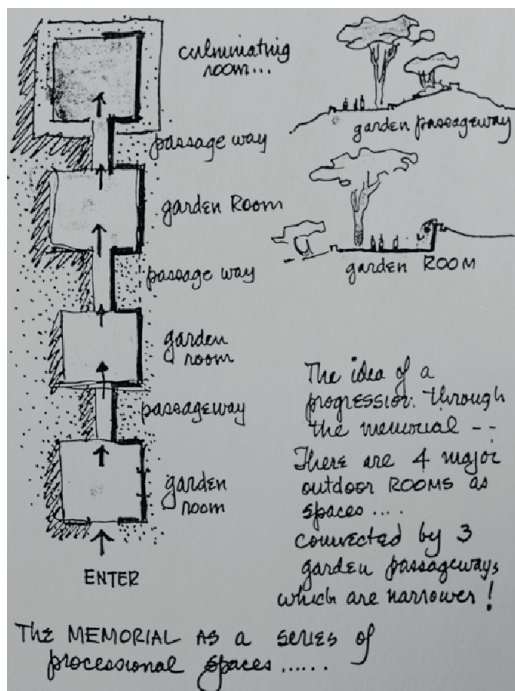 culminating
room...
passage way
garden passageway
garden Room
garden ROOM
passage way
garden
room
passageway
garden
room
ENTER
The idea of a
progression. through
the memorial --
There are 4 major
outdoor ROOMS as
spaces....
connected by 3
garden passageways
which are narrower!
The MEMORIAL AS a SERIES of
processional spaces......